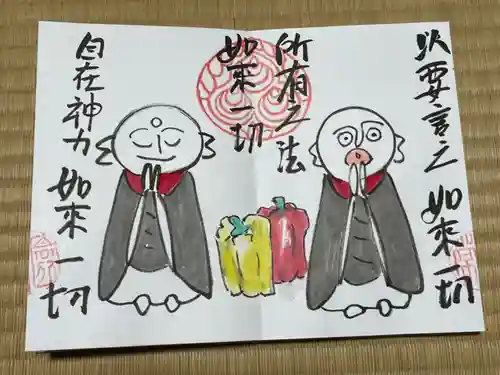 以要言之
如來一切
所有之法
如來一切
自在神力
如來一切